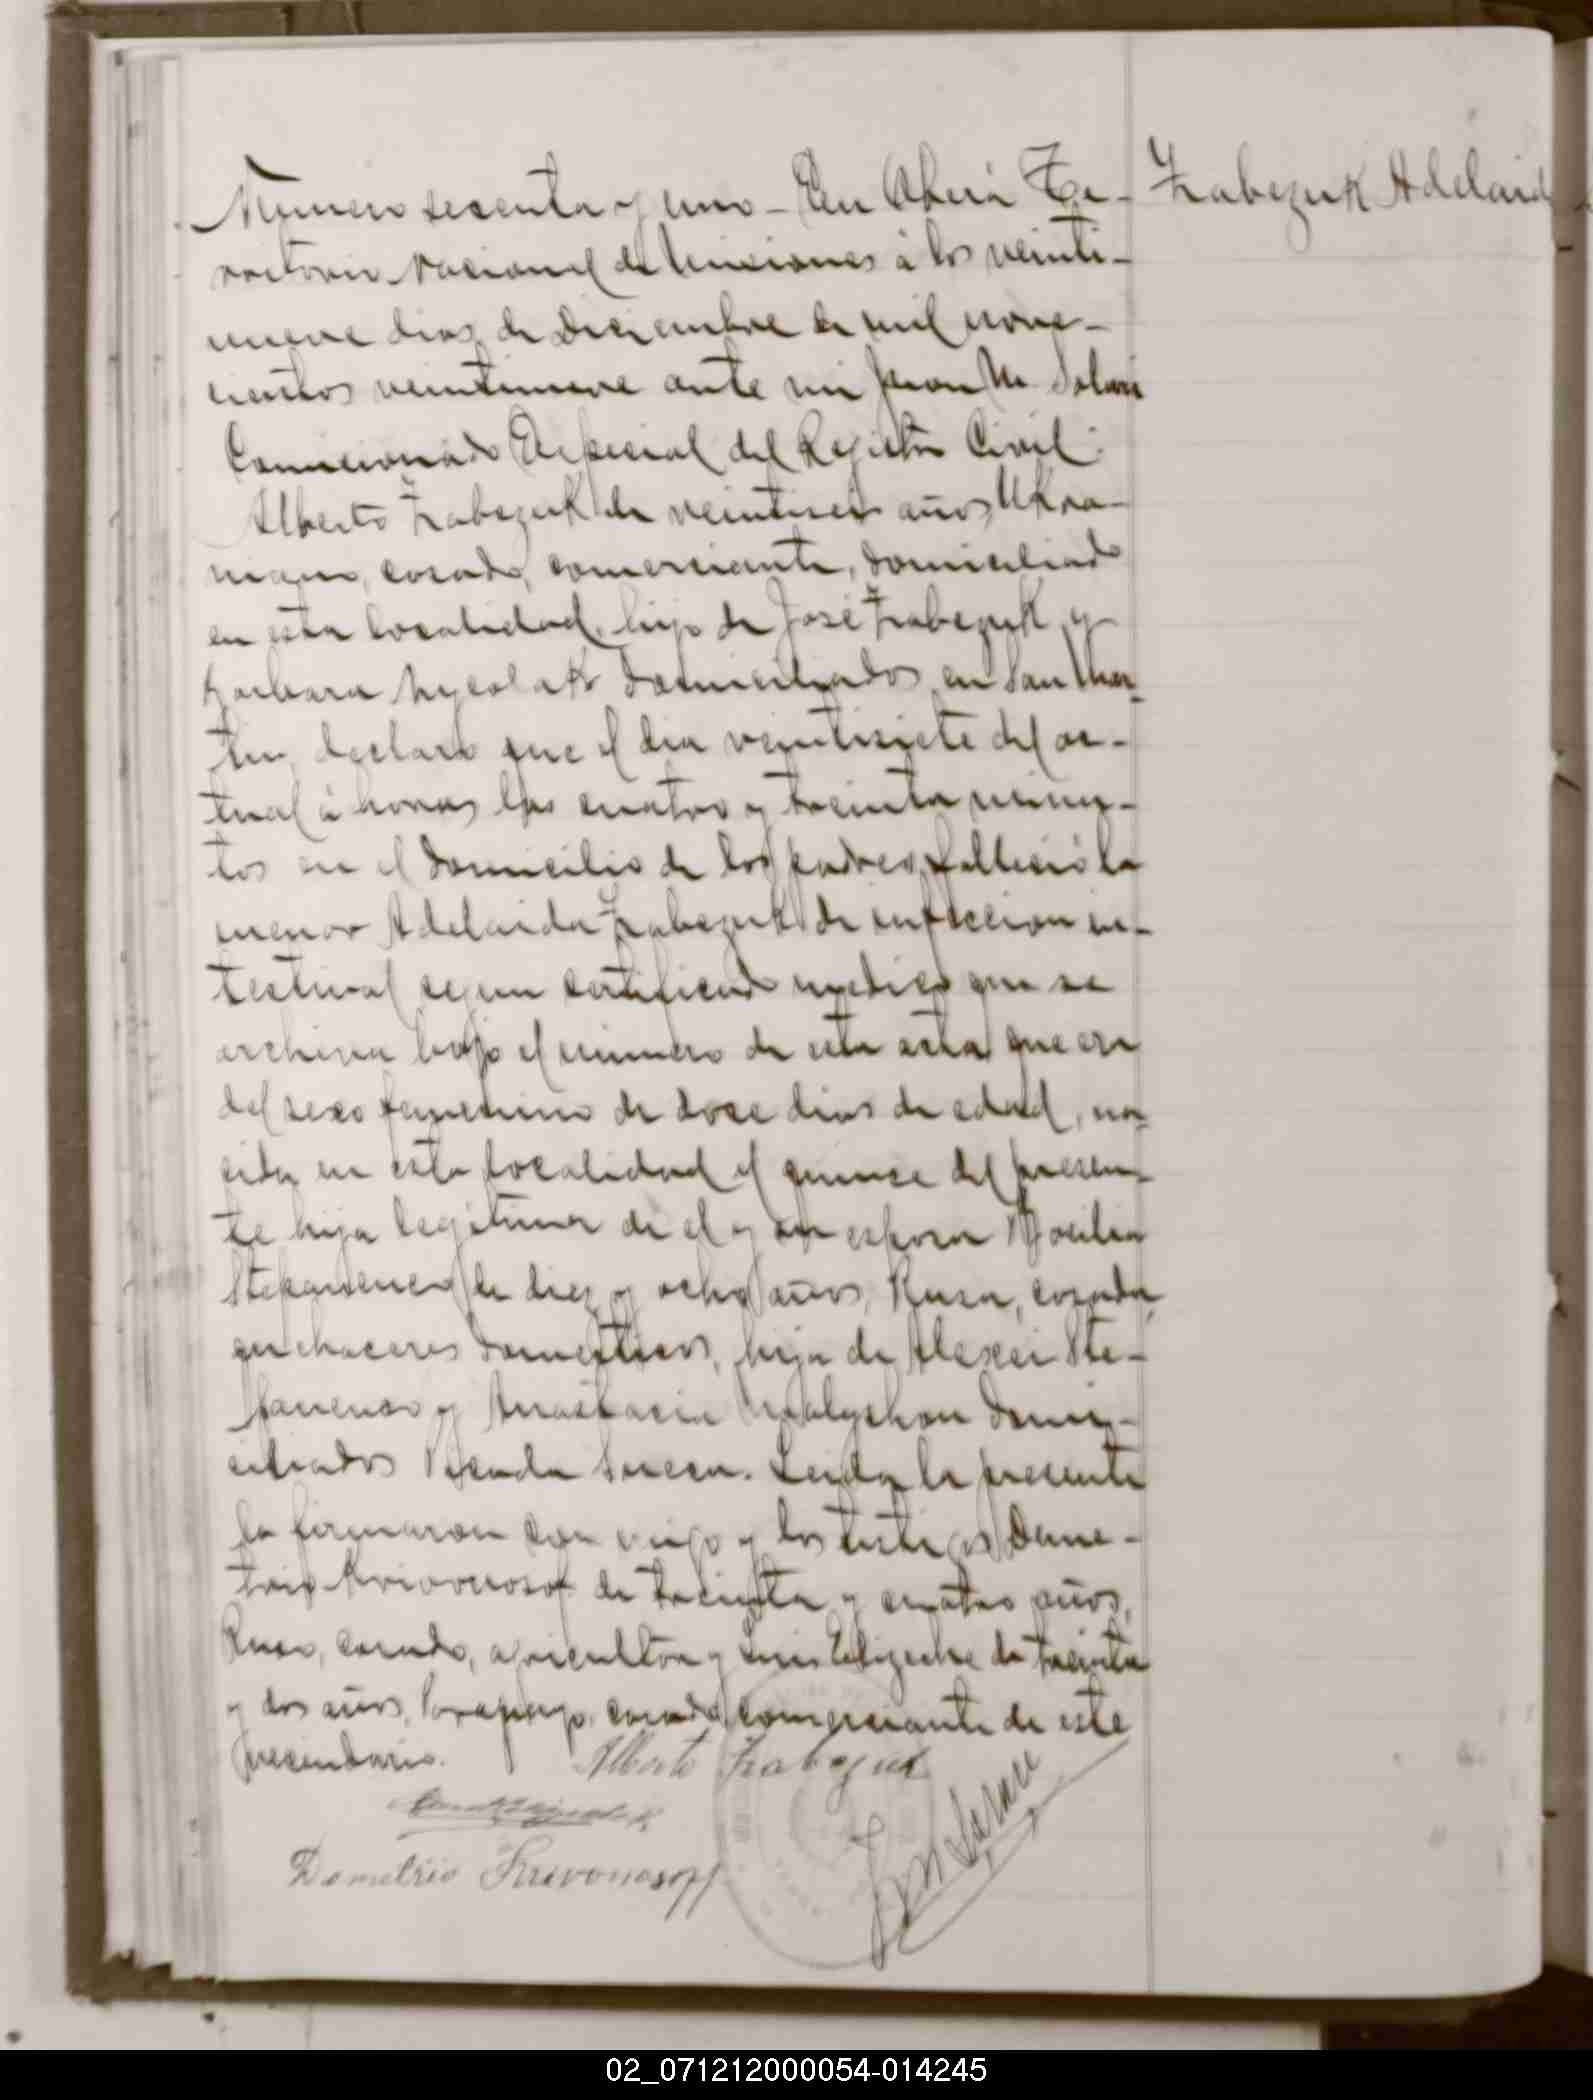 Numero sesenta y uno - En Oberá Te-
Trabczuk Adelaid
rritorio Nacional de Misiones á los veinti-
nueve dias de Diciembre de mil nove-
cientos veintinueve ante mi Juan M. Solari
Comicionado Especial del Registro Civil.
Alberto Trabczuk de veintiseis años, Ukra-
niano, casado, comerciante, domiciliado
en esta localidad, hijo de José Trabczuk y
Barbara domiciliados en San Mar-
tin, declaro que el dia veintisiete del ac-
tual á horas las cuatro y treinta minu-
tos en el domicilio de los padres fallecio la
menor Adelaida Trabczuk de infeccion in-
testinal segun certificado medico que se
archiva bajo el numero de esta acta que era
del sexo femenino de doce dias de edad, na-
cida en esta localidad el quinse del presen-
te hija legitima de el y su esposa
Stepanenco de diez y ocho años, Rusa, casada,
quehaceres domesticos, hija de Alexei Ste-
panenco y Anastacia domi-
ciliados Picada Sueca. Leida la presente
la firmaron con migo y los testigos Deme-
trio Krivonosof de treinta y cuatro años,
Ruso, casado, agricultor y Luis de treinta
y dos años, Paraguayo, casado, comerciante de este
vecindario.
Alberto Trabczuk
Demetrio Krivonosoff
02_071212000054-014245